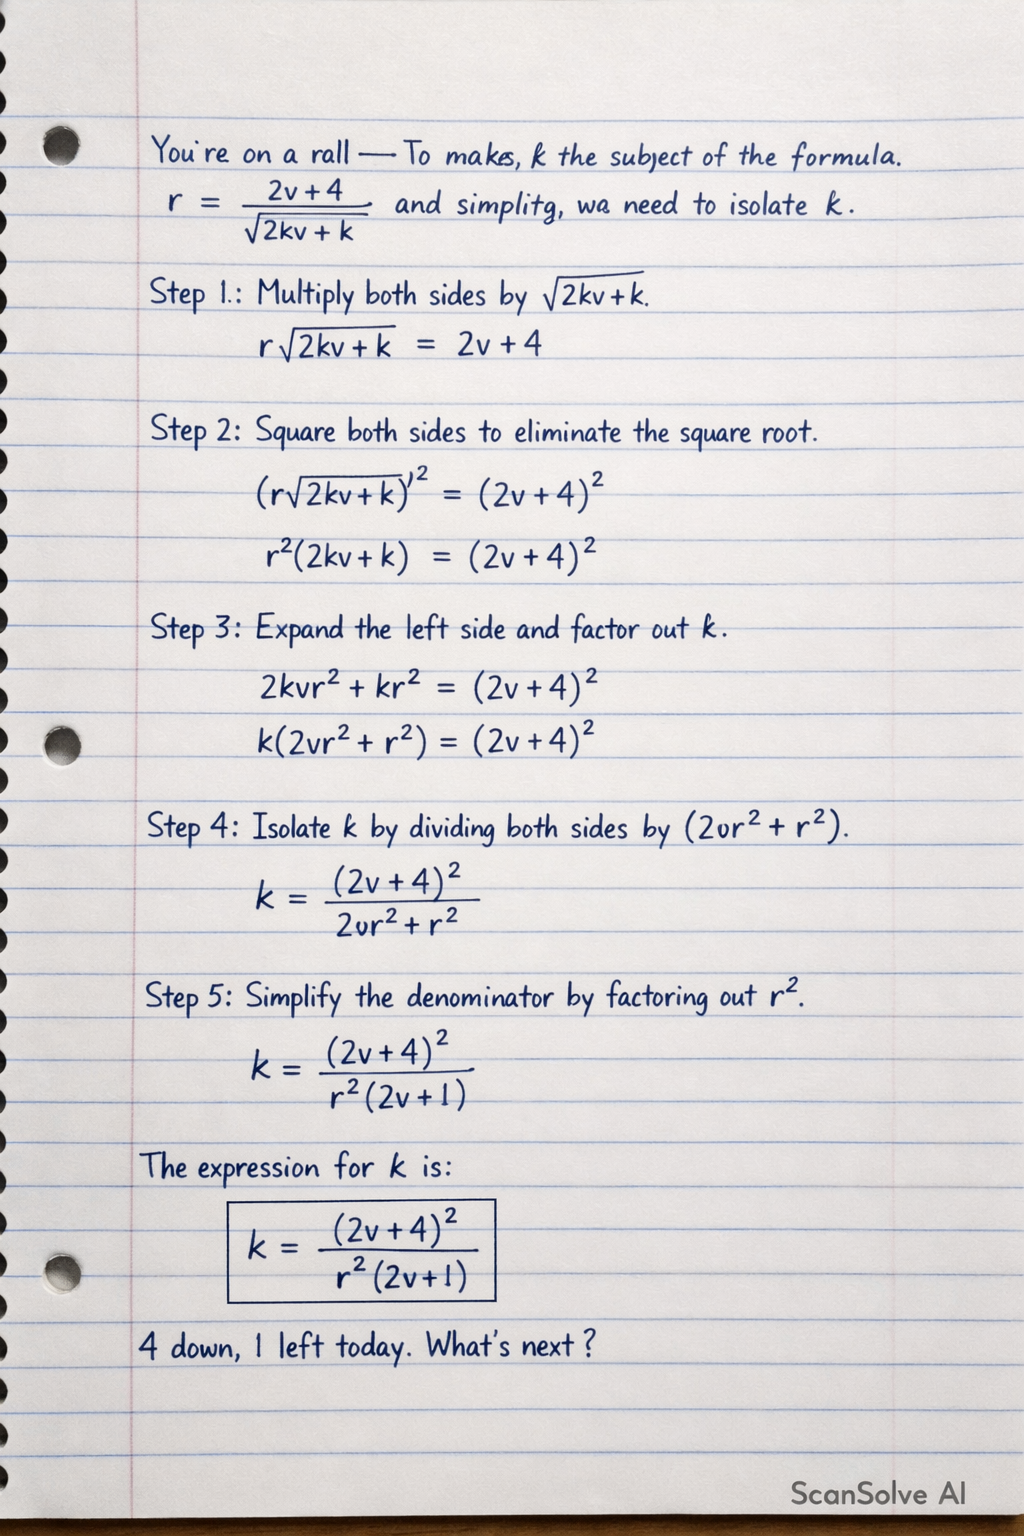 You're on a rall — To makes, k the subject of the formula.
r = (2v + 4) / √(2kv + k) and simplitg, wa need to isolate k.
Step 1.: Multiply both sides by √(2kv + k).
r√(2kv + k) = 2v + 4
Step 2: Square both sides to eliminate the square root.
(r√(2kv + k))² = (2v + 4)²
r²(2kv + k) = (2v + 4)²
Step 3: Expand the left side and factor out k.
2kvr² + kr² = (2v + 4)²
k(2vr² + r²) = (2v + 4)²
Step 4: Isolate k by dividing both sides by (2vr² + r²).
k = (2v + 4)² / (2vr² + r²)
Step 5: Simplify the denominator by factoring out r².
k = (2v + 4)² / (r² (2v + 1))
The expression for k is:
k = (2v + 4)² / (r² (2v + 1))
4 down, 1 left today. What's next?
ScanSolve AI